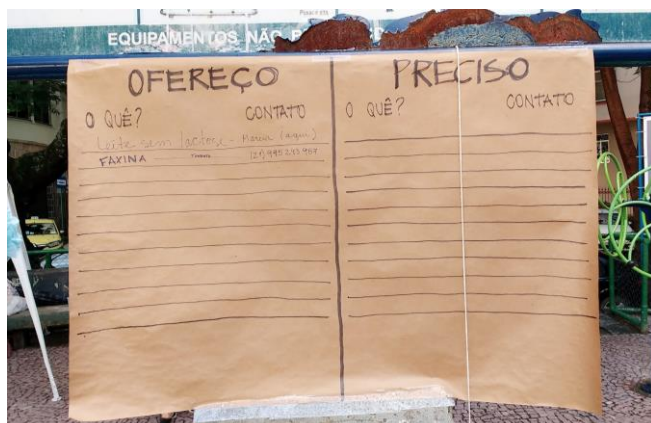 EQUIPAMENTOS NÃO
OFEREÇO
O QUÊ? CONTATO
Leite sem lactose - (aqui)
FAXINA
PRECISO
O QUÊ? CONTATO